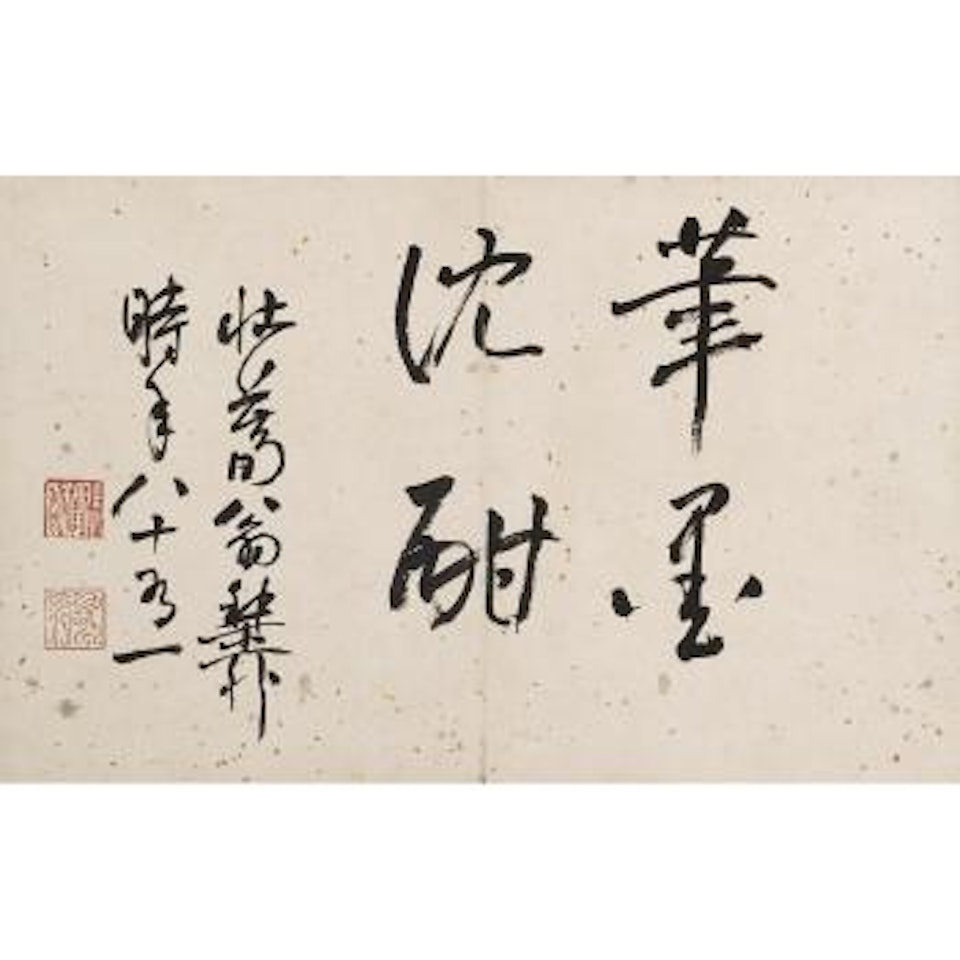 筆墨
沈酣
壯暮翁稚柳
時年八十有一